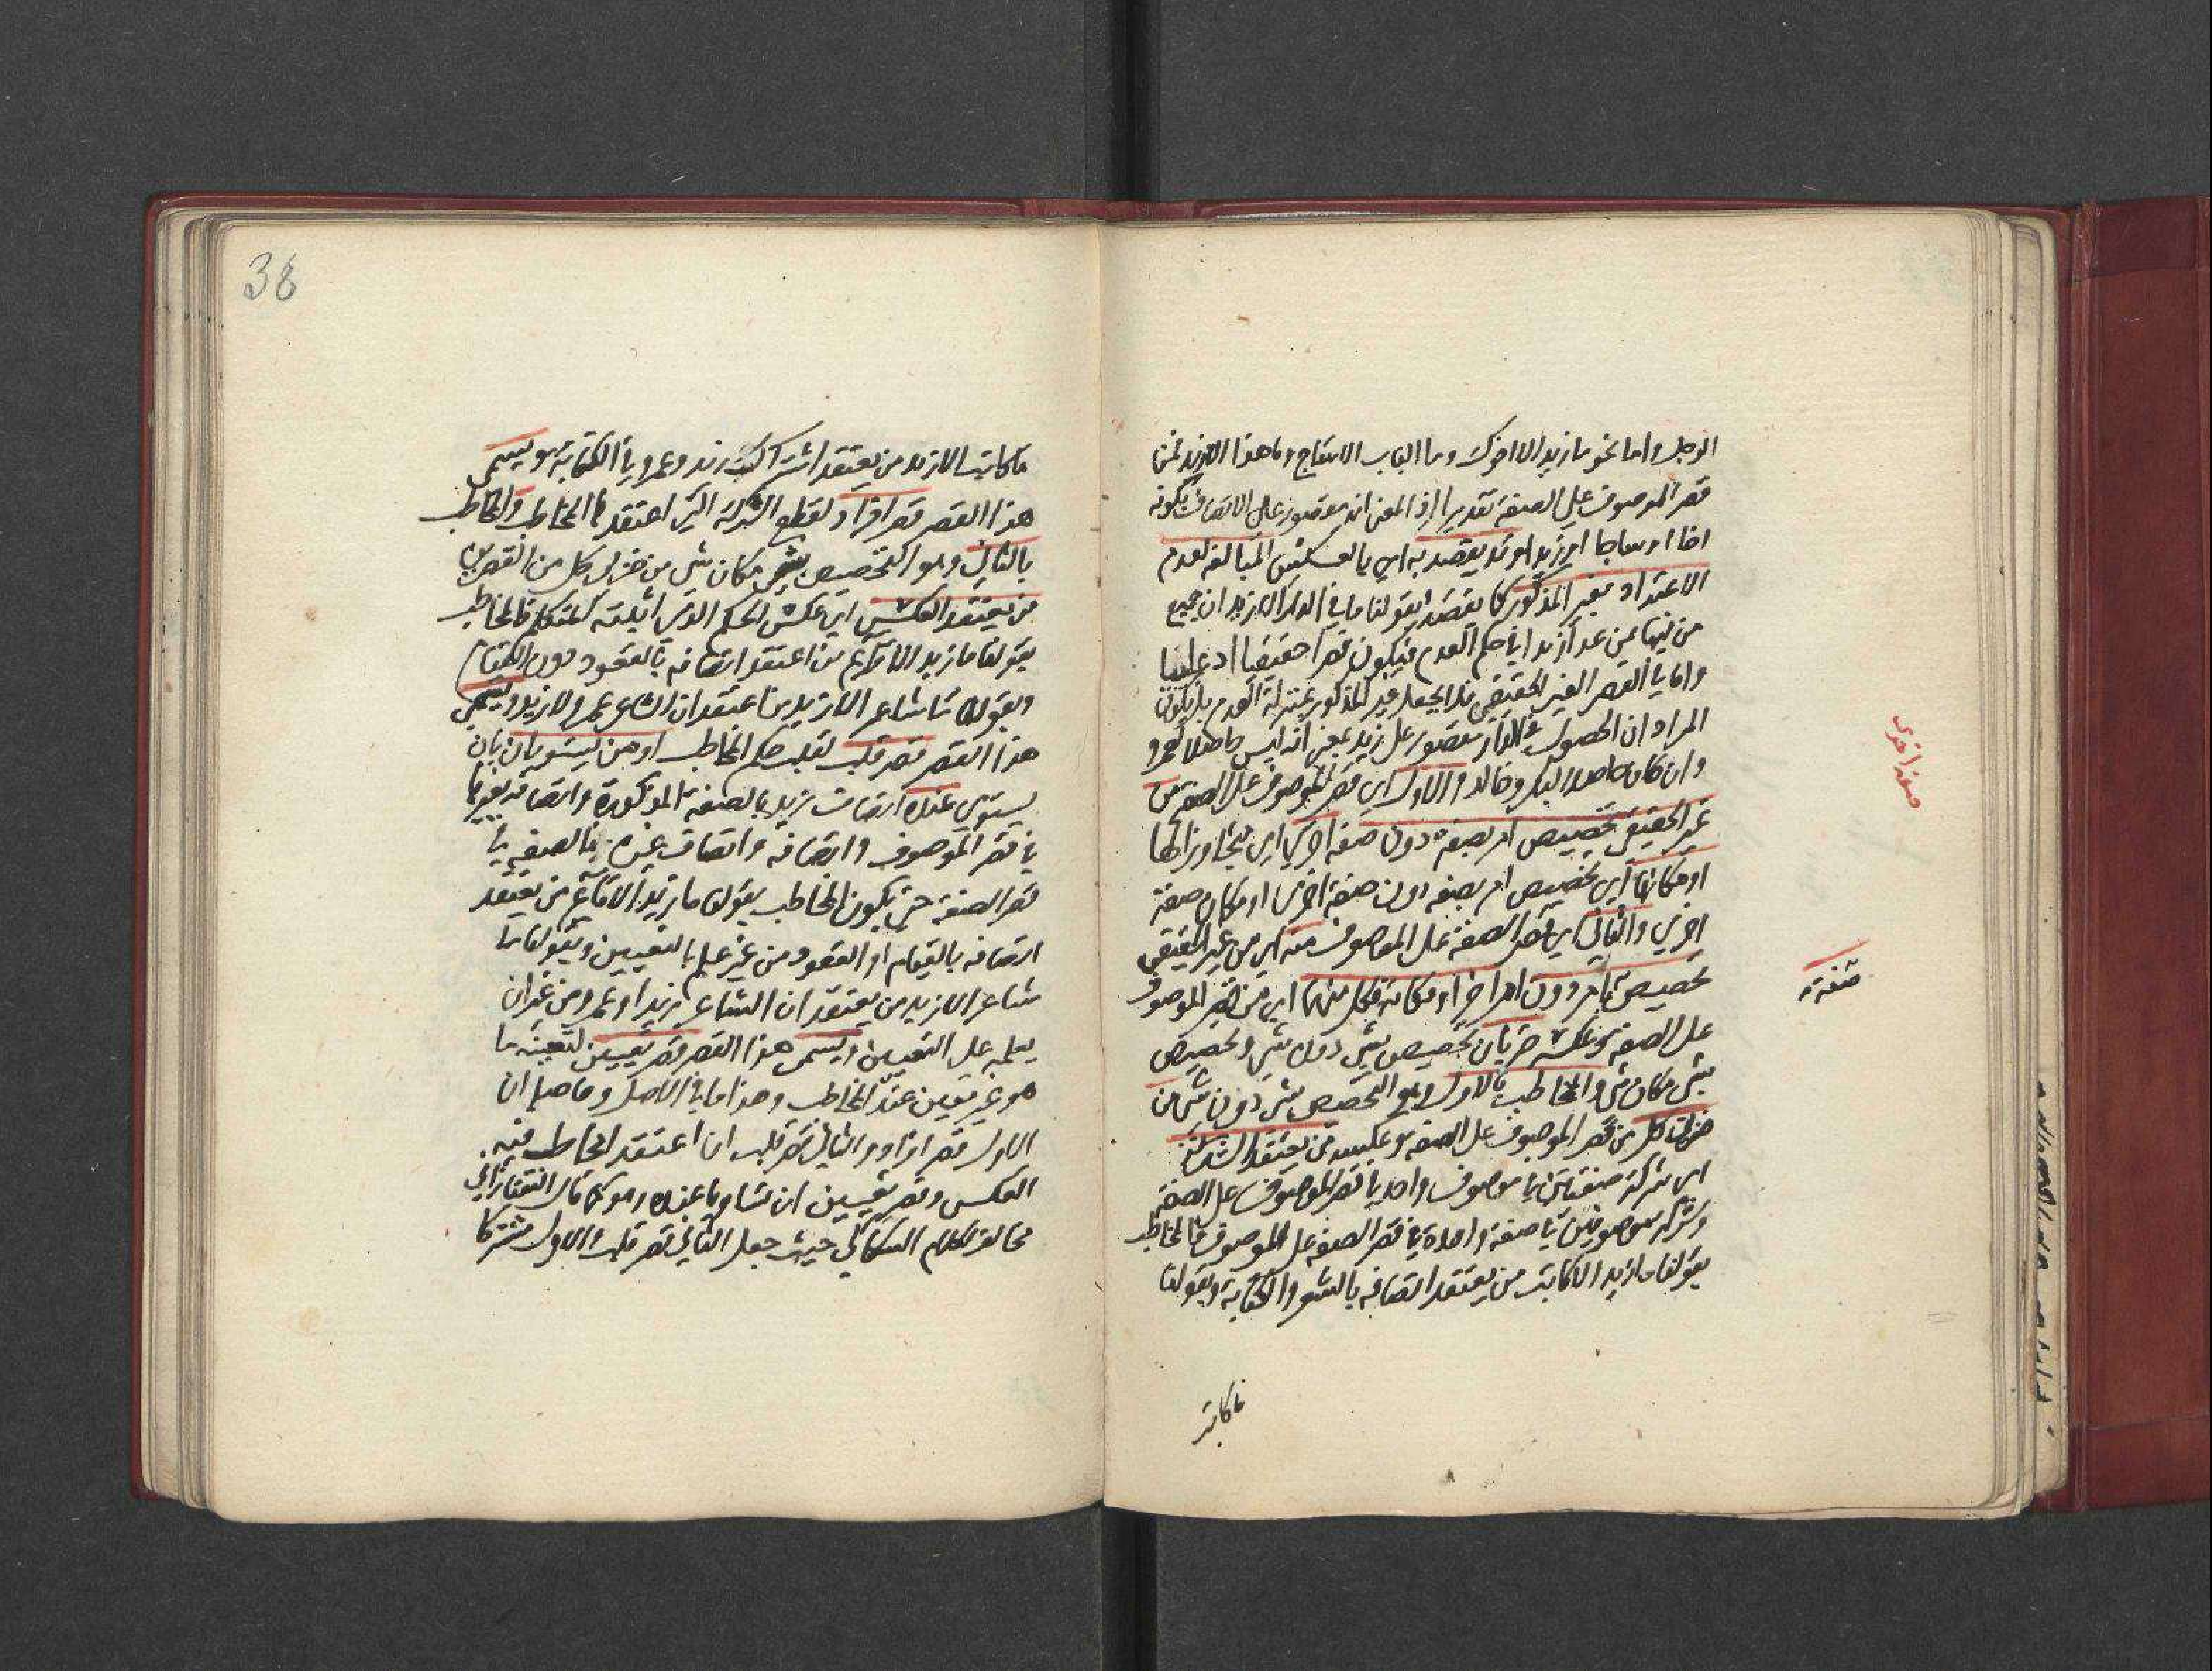 الرجل واما نحو ما زيد الا اخوك وما الباب الا ساج وما هذا الا زيد فمن
قصر الموصوف على الصفة تقديرا اذ المعنى انه مقصور على الاتصاف بكونه
اخا او ساجا او زيدا وقد يقصد به اي بالمبالغة لعدم
الاعتداد بغير المذكور كما يقصد بقولنا ما في الدار الا زيد ان جميع
من فيها ممن عدا زيدا في حكم العدم فيكون قصرا حقيقيا ادعائيا
واما في القصر الغير الحقيقي فلا يجعل غير المذكور بمنزلة العدم بل يكون
المراد ان الحصول في الدار مقصور على زيد بمعنى انه ليس حاصلا لعمرو
وان كان حاصلا لبكر وخالد والاول اي قصر الموصوف على الصفة من
غير الحقيقي تخصيص امر بصفة دون صفة اخرى اي متجاوزا لها
او مكانها اي تخصيص امر بصفة دون صفة اخرى او مكان صفة
اخرى والثاني اي قصر الصفة على الموصوف منه اي من غير الحقيقي
تخصيص صفة بامر دون امر اخر او مكانه فكل منهما اي من قصر الموصوف
على الصفة وعكسه ضربان تخصيص بشي دون شي وتخصيص
بشي مكان شي والمخاطب بالاول وهو التخصيص بشي دون شي من
ضربي كل من قصر الموصوف على الصفة وعكسه من يعتقد الشركة
اي شركة صفتين في موصوف واحد في قصر الموصوف على الصفة
وشركة موصوفين في صفة واحدة في قصر الصفة على الموصوف فالمخاطب
بقولنا ما زيد الا كاتب من يعتقد اتصافه بالشعر والكتابة وبقولنا
ما كاتب
صفة اخرى
صفة
38
ما كاتب الا زيد من يعتقد اشتراك زيد وعمرو في الكتابة ويسمى
هذا القصر قصر افراد لقطع الشركة التي اعتقدها المخاطب والمخاطب
بالثاني وهو التخصيص بشي مكان شي من ضربي كل من القصرين
من يعتقد العكس اي عكس الحكم الذي اثبته المتكلم فالمخاطب
بقولنا ما زيد الا قائم من اعتقد اتصافه بالقعود دون القيام
وبقولنا ما شاعر الا زيد من اعتقد ان الشاعر عمرو لا زيد ويسمى
هذا القصر قصر قلب لقلب حكم المخاطب او من يستويان بان
يستوي عنده اتصاف زيد بالصفة المذكورة واتصافه بغيرها
في قصر الموصوف واتصافه واتصاف غيره بالصفة في
قصر الصفة حتى يكون المخاطب بقولنا ما زيد الا قائم من يعتقد
اتصافه بالقيام او القعود من غير علم بالتعيين وبقولنا ما
شاعر الا زيد من يعتقد ان الشاعر زيد او عمرو من غير ان
يعلمه على التعيين ويسمى هذا القصر قصر تعيين لتعيينه ما
هو غير معين عند المخاطب وهذا ما في الاصل وحاصله ان
الاول قصر افراد والثاني قصر قلب ان اعتقد المخاطب فيه
العكس وقصر تعيين ان تساويا عنده وهو كما قال التفتازاني
مخالف لكلام السكاكي حيث جعل الثاني قصر قلب والاول مشتركا